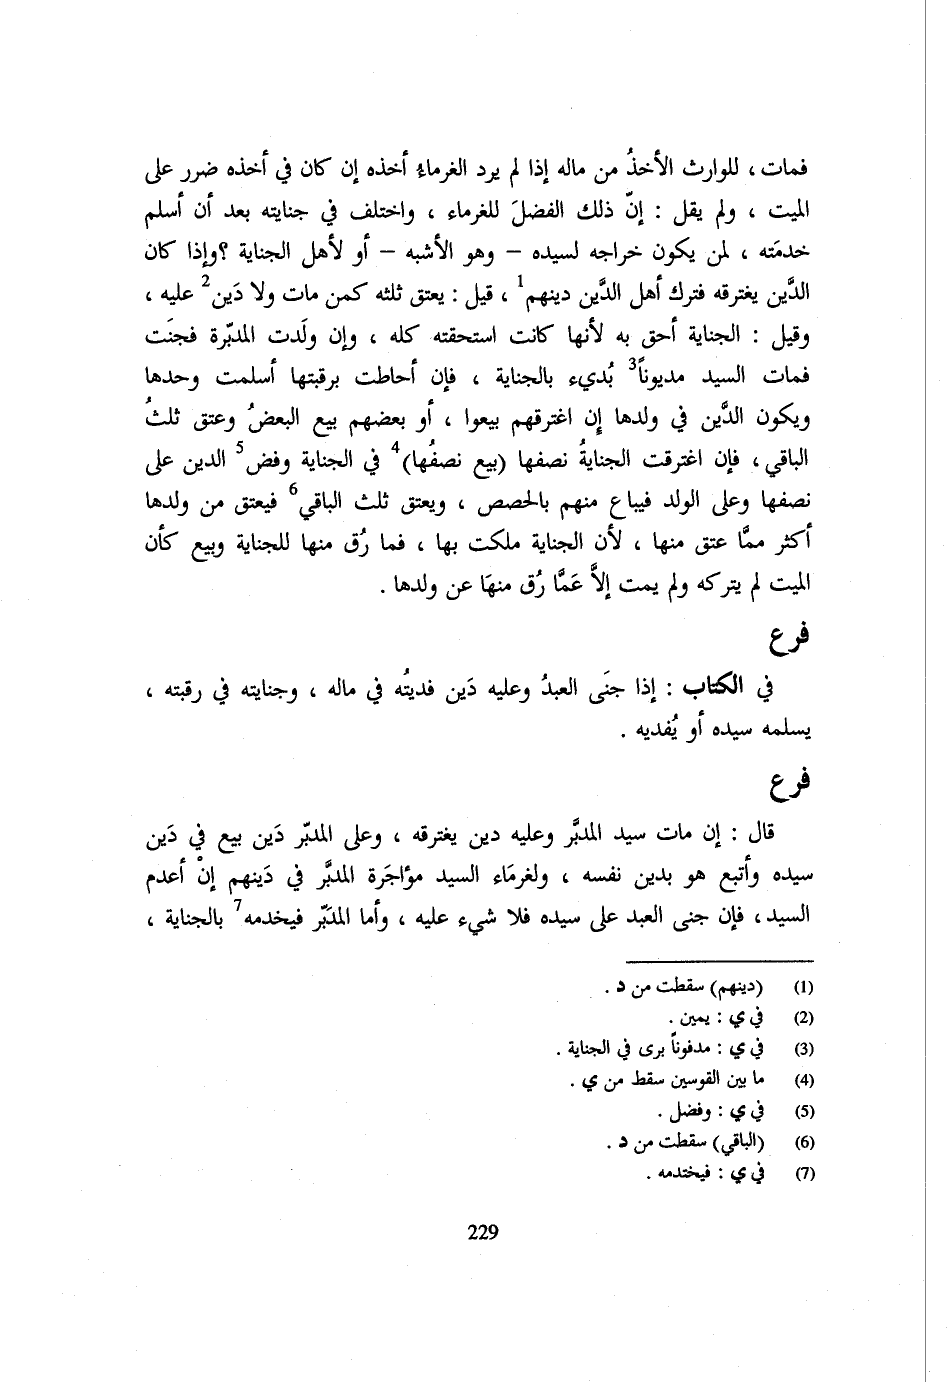 فمات ، للوارث الأخذُ من ماله إذا لم يرد الغرماءُ أخذه إن كان في أخذه ضرر على
الميت ، ولم يقل : إنّ ذلك الفضلَ للغرماء ، واختلف في جنايته بعد أن أسلم
خدمَته ، لمن يكون خراجه لسيده – وهو الأشبه – أو لأهل الجناية ؟وإذا كان
الدَّين يغترقه فترك أهل الدَّين دينهم1 ، قيل : يعتق ثلثه كمن مات ولا دَين2 عليه ،
وقيل : الجناية أحق به لأنها كانت استحقته كله ، وإن ولَدت المدبّرة فجنَت
فمات السيد مديوناً3 بُديء بالجناية ، فإن أحاطت برقبتها أسلمت وحدها
ويكون الدَّين في ولدها إن اغترقهم بيعوا ، أو بعضهم بيع البعضُ وعتق ثلثُ
الباقي ، فإن اغترقت الجنايةُ نصفها (بيع نصفُها)4 في الجناية وفض5 الدين على
نصفها وعلى الولد فيباع منهم بالحصص ، ويعتق ثلث الباقي6 فيعتق من ولدها
أكثر ممَّا عتق منها ، لأن الجناية ملكت بها ، فما رُق منها للجناية وبيع كأن
الميت لم يتركه ولم يمت إلاَّ عَمَّا رُق منهَا عن ولدها .
فرع
في الكتاب : إذا جنَى العبدُ وعليه دَين فديتُه في ماله ، وجنايته في رقبته ،
يسلمه سيده أو يُفديه .
فرع
قال : إن مات سيد المدبَّر وعليه دين يغترقه ، وعلى المدبّر دَين بيع في دَين
سيده وأتبع هو بدين نفسه ، ولغرمَاء السيد مؤاجَرة المدبَّر في دَينهم إنْ أعدم
السيد ، فإن جنى العبد على سيده فلا شيء عليه ، وأما المدَبّر فيخدمه7 بالجناية ،
(1) (دينهم) سقطت من د .
(2) في ي : يمين .
(3) في ي : مدفوناً يرى في الجناية .
(4) ما بين القوسين سقط من ي .
(5) في ي : وفضل .
(6) (الباقي) سقطت من د .
(7) في ي : فيختدمه .
229